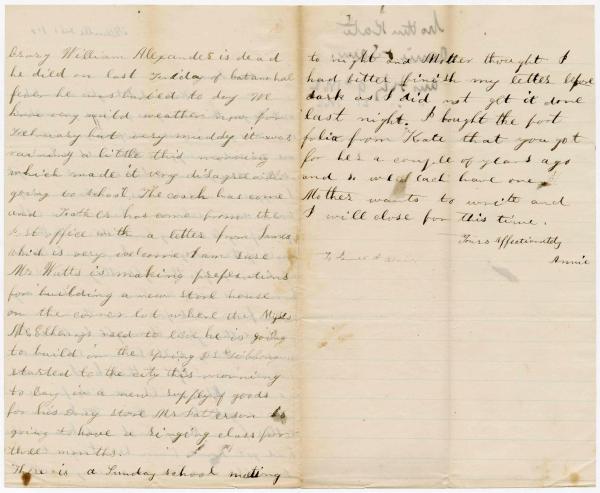 Crazy William Alexander is dead
he died on last Tuesday of
fever he was buried to day We
have very mild weather now for
February but very muddy it was
raining a little this morning
which made it very disagreeable
going to school. The coach has come
and Father has come from the
post office with a letter from James
which is very welcome I am sure
Mr Watts is making preperations
for building a new store house
on the corner lot where the Miss
used to live he is going
to build in the spring
started to the city this morning
to lay in a new supply of goods
for his Drug store Mr Patterson is
going to have a singing class for
three months.
There is a Sunday school meeting
to night and Mother thought I
had bitter finish my letter before
dark as I did not get it done
last night. I bought the port
folio from Kate that you got
for her a couple of years ago
and so we each have one
Mother wants to write and
I will close for this time.
Yours Affectionately
Annie